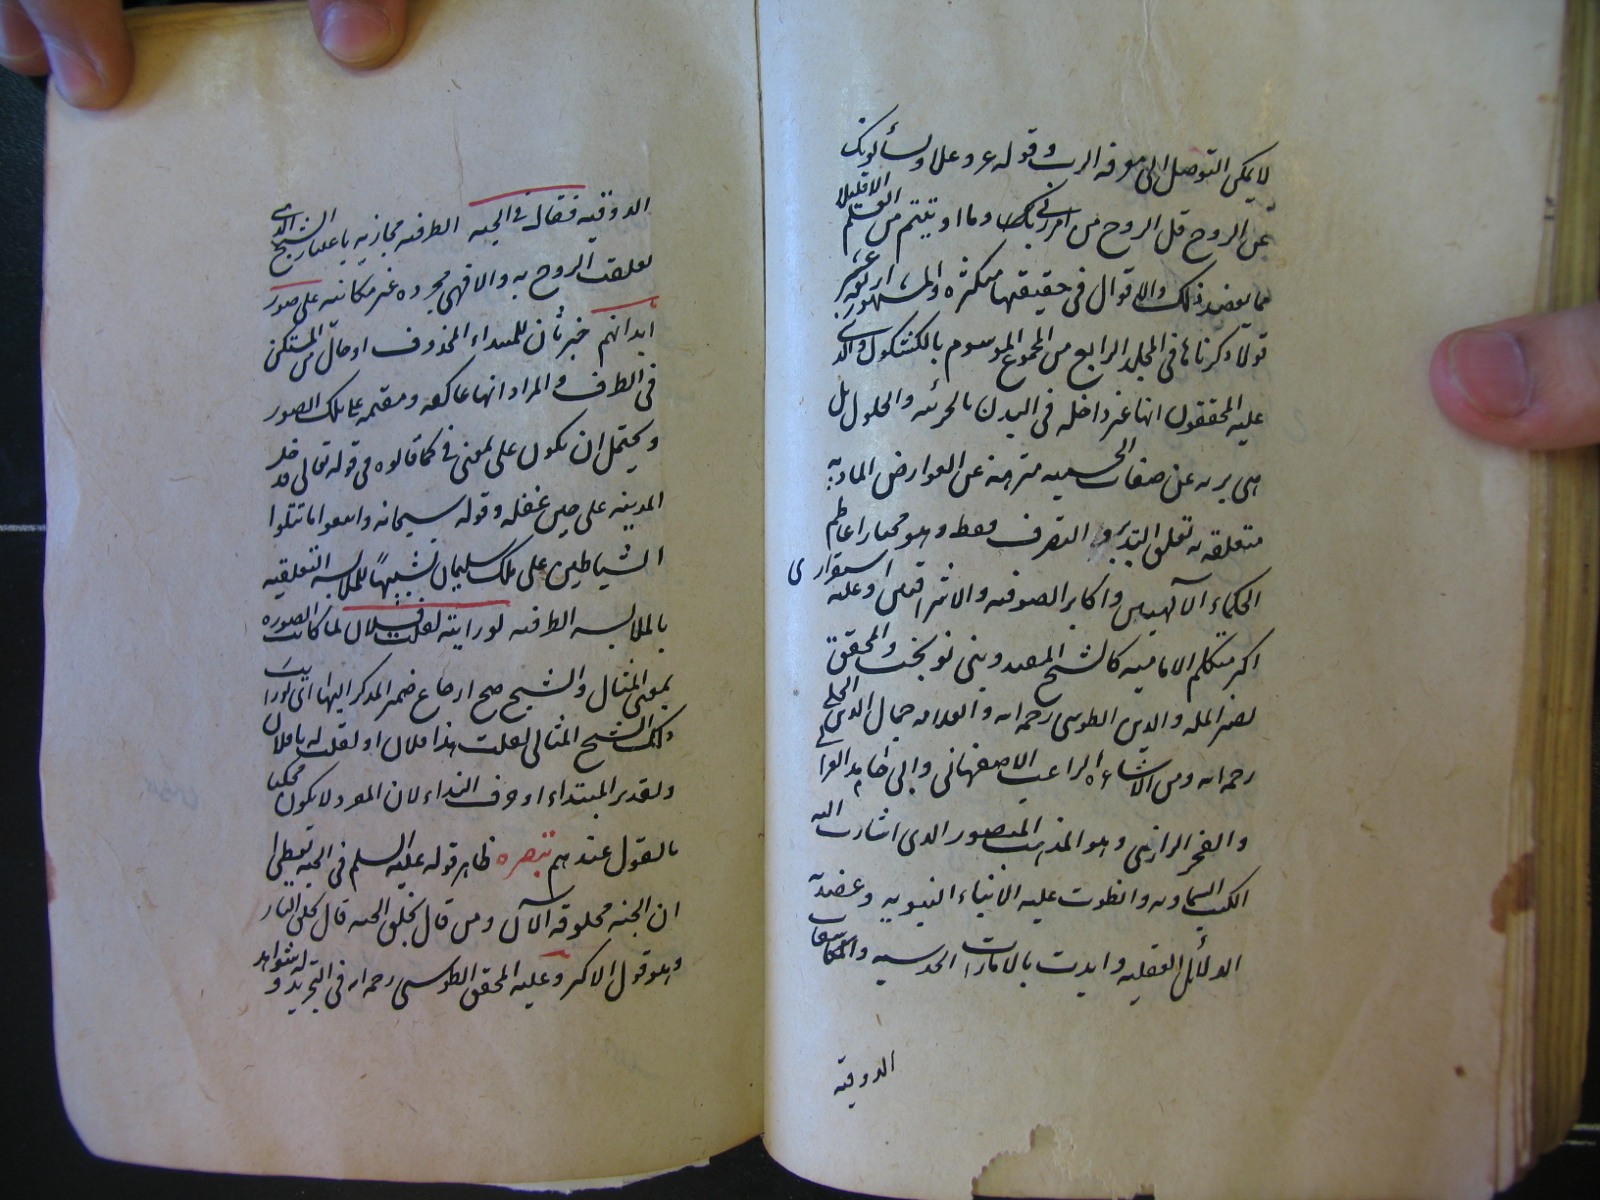 لا يمكن التوصل الى معرفة الرب وقوله عز وعلا ويسألونك
عن الروح قل الروح من امر ربك وما اوتيتم من العلم الا قليلا
مما يعضد ذلك والاقوال في حقيقتها متكثرة والمشهور اربعة عشر
قولا ذكرناها في المجلد الرابع من المجموع الموسوم بالكشكول والذي
عليه المحققون انها غير داخلة في البدن بالجزئية والحلول بل
هي برية عن صفات الجسمية منزهة عن العوارض المادية
متعلقة به تعلق التدبير والتصرف فقط وهو مختار اعاظم
الحكماء الالهيين واكابر الصوفية والاشراقيين وعليه استقر راى
اكثر متكلمي الامامية كالشيخ المفيد وبني نوبخت والمحقق
نصير الملة والدين الطوسي رحمه الله والعلامة جمال الدين الحلي
رحمه الله ومن الاشاعرة الراغب الاصفهاني وابي حامد الغزالي
والفخر الرازي وهو المذهب المنصور الذي اشارت اليه
الكتب السماوية وانطوت عليه الانباء النبوية وعضدته
الدلائل العقلية وايدته الامارات الحدسية والمكاشفات
الذوقية
الذوقية فقال في الجنة الظرفية مجازية باعتبار الشبح الذي
تعلقت الروح به والا فهي مجردة غير مكانية على صور
ابدانهم خبر ثان للمبتداء المحذوف او حال من المستكن
في الظرف والمراد انها عاكفة ومقيمة على تلك الصور
ويحتمل ان يكون على بمعنى في كما قالوه في قوله تعالى ودخل
المدينة على حين غفلة وقوله سبحانه واتبعوا ما تتلوا
الشياطين على ملك سليمان تشبيها للملابسة التعلقية
بالملابسة الظرفية لو رايته لقلت فلان لما كانت الصورة
بمعنى المثال والشبح صح ارجاع ضمير المذكر اليها اي لو رايت
ذلك الشبح المثالي لقلت هذا فلان او لقلت له يا فلان
وتقدير المبتداء او حرف النداء لان المفرد لا يكون محكيا
بالقول عندهم تبصرة ظاهر قوله عليه السلم في الجنة يعطي
ان الجنة مخلوقة الآن ومن قال بخلق الجنة قال بخلق النار
وهو قول الاكثر وعليه المحقق الطوسي رحمه الله في التجريد وله شواهد